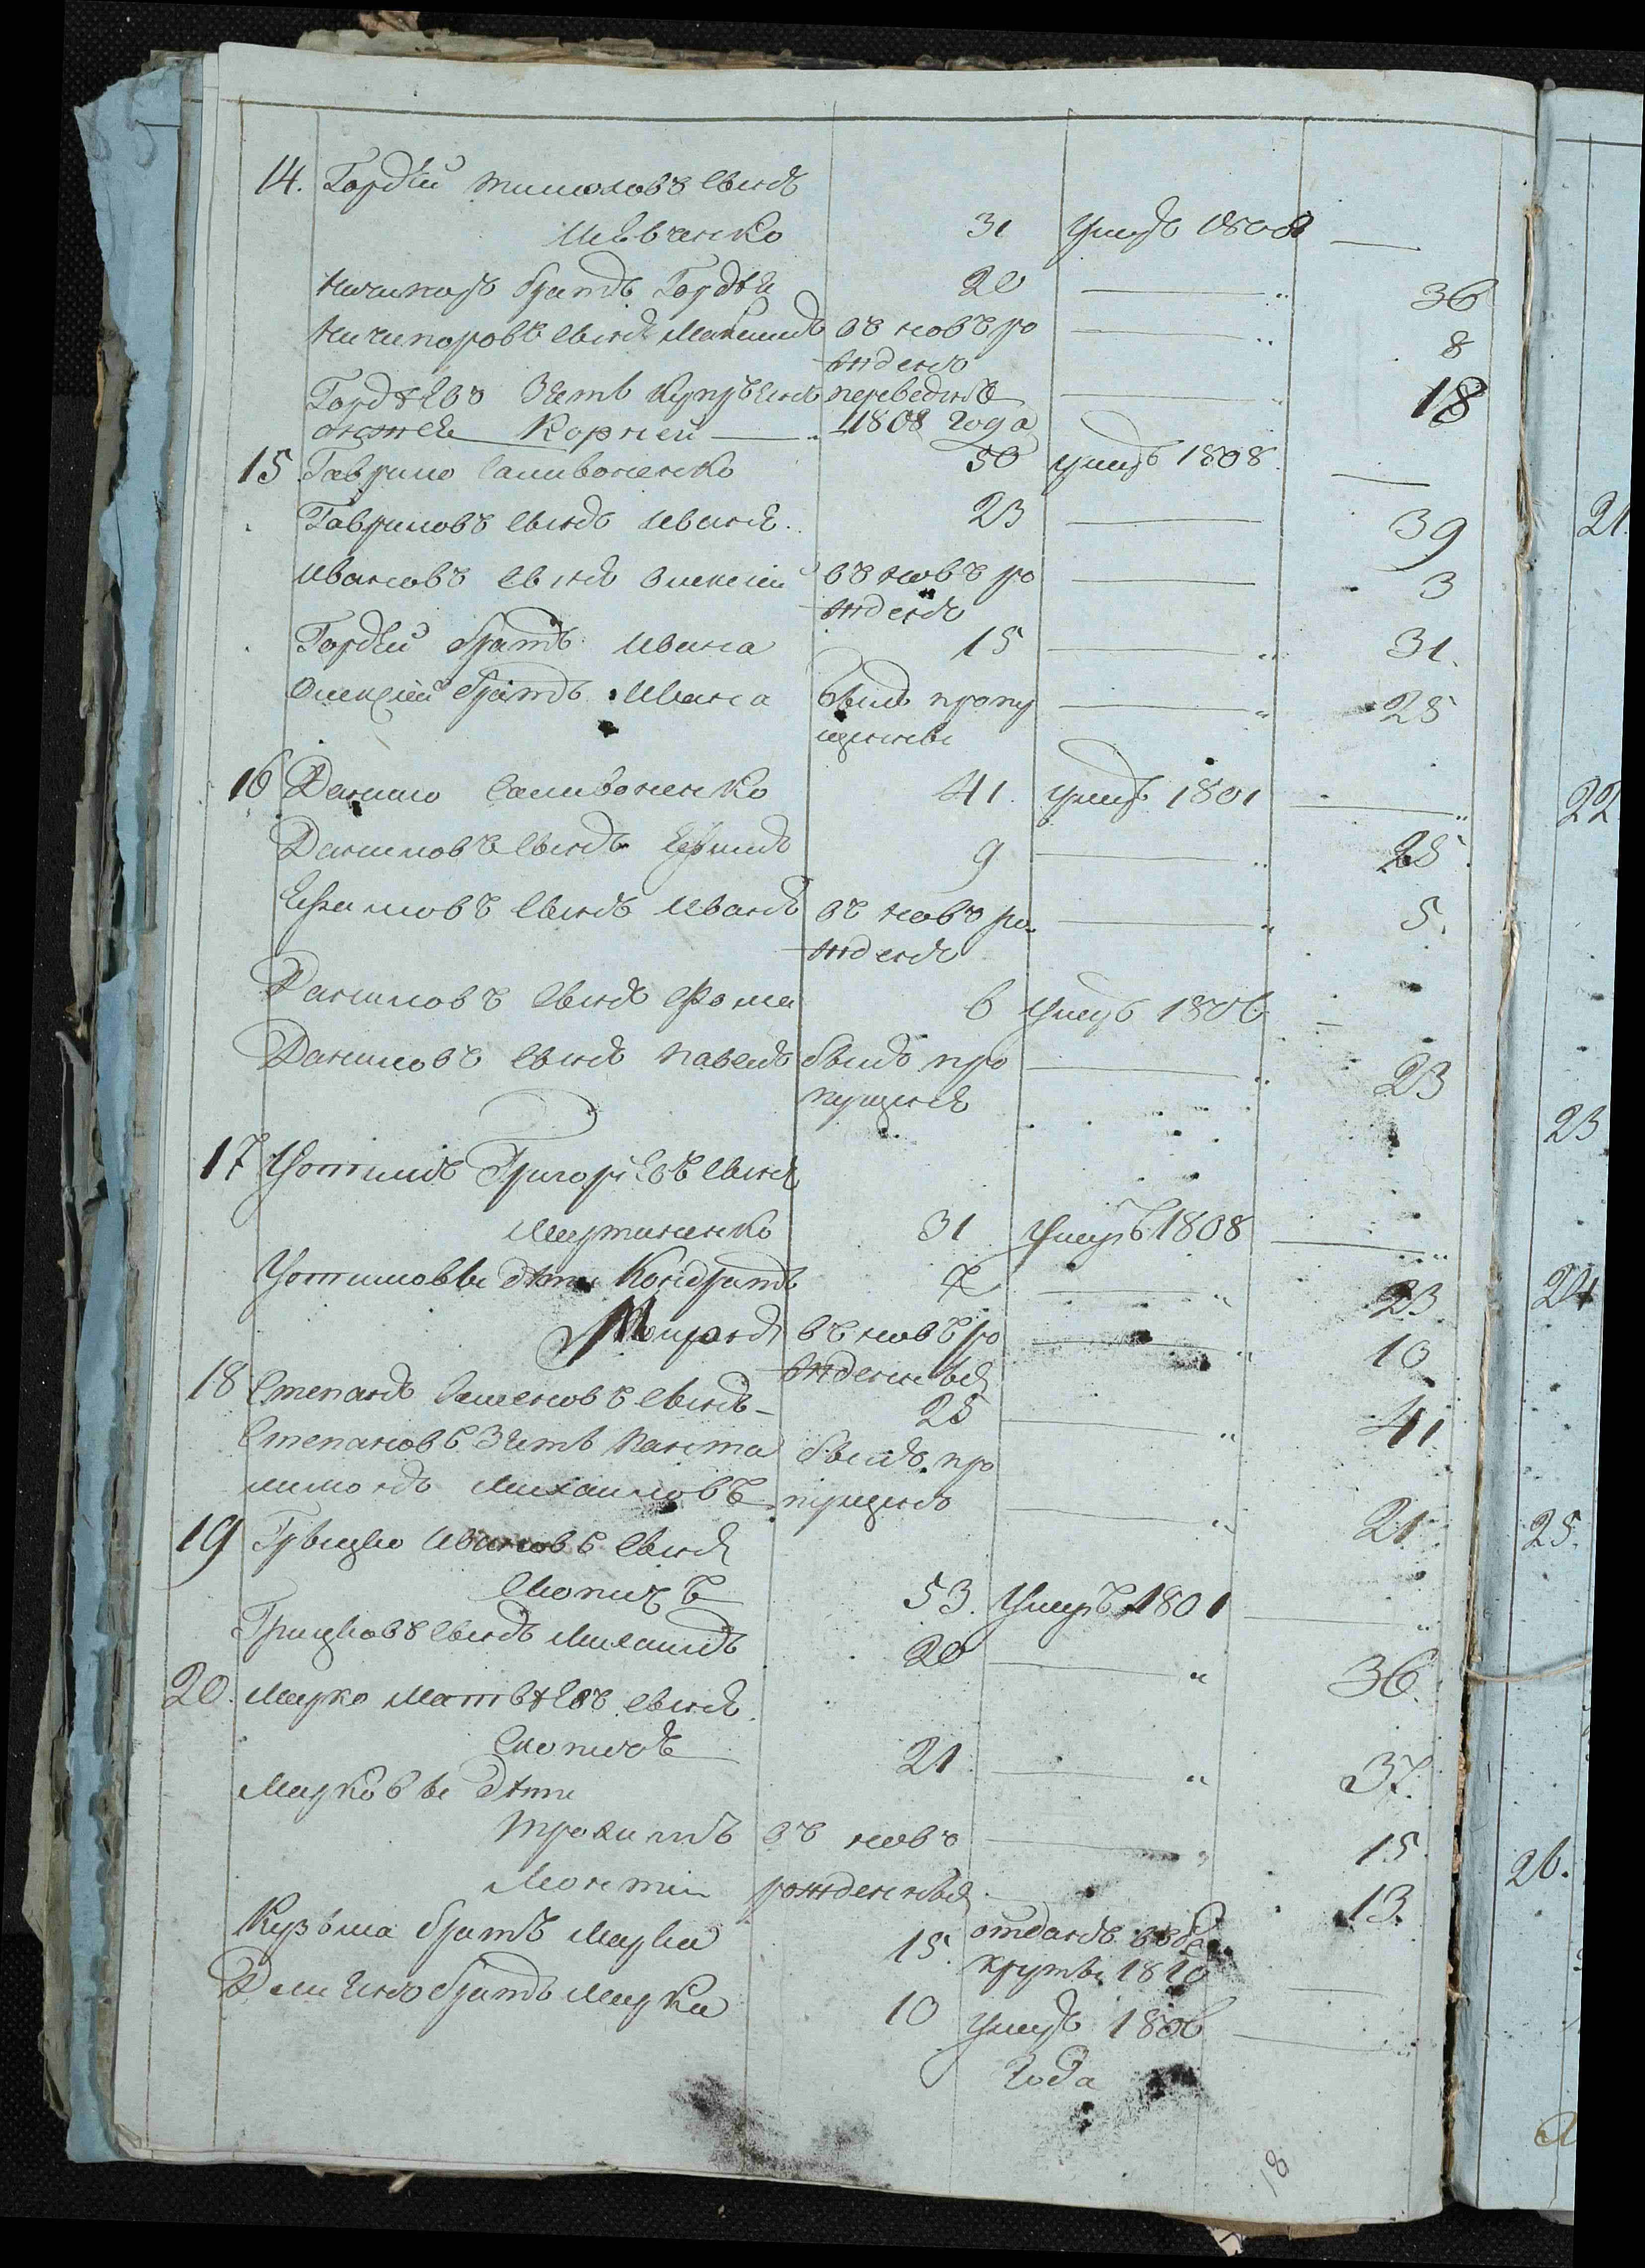 14. Гордѣй Тимоховъ сынъ
Шевченко 31 умеръ 1808
Ничипоръ братъ Гордѣя 20 36
Ничипоровъ сынъ Максимъ въ новъ ро 8
жденъ
Гордѣевъ Зеть переведенъ 18
онже Корней 1808 года
15 Гаврило Саливоненко 50 умеръ 1808
Гавриловъ сынъ Иванъ 23 39
Ивановъ сынъ Олексей въ новъ ро 3
жденъ
Гордѣй братъ Ивана 15 31.
Олексѣй братъ Ивана былъ пропу 25
щенный
16 Данило Саливоненко 41. умеръ 1801
Даниловъ сынъ Ефимъ 9 25
Ефимовъ сынъ Иванъ въ новъ ро 5.
жденъ
Даниловъ сынъ Фома 6 умеръ 1806
Даниловъ сынъ Павелъ былъ про 23
пущенъ
17 Устимъ Григорьевъ сынъ
Мартиненко 31 умеръ 1808
Устимовы дѣти Кондратъ 7 23
Миронъ въ новъ ро 10
жденный
18 Степанъ Семеновъ сынъ 25 41
Степановъ Зеть Панте былъ про
лимонъ Михайловъ пущенъ 21
19 Грицко Ивановъ сынъ
53. умеръ 1801
Грицковъ сынъ Михаилъ 20 36.
20. Марко Матвѣевъ сынъ
21 37.
Марковы дѣти
Трохимъ въ новъ 15
рожденный 13.
Кузьма братъ Марка 15. отданъ въ
круты 1810
братъ Марка 10 умеръ 1806
года
18
21.
22
23
24
25.
26.